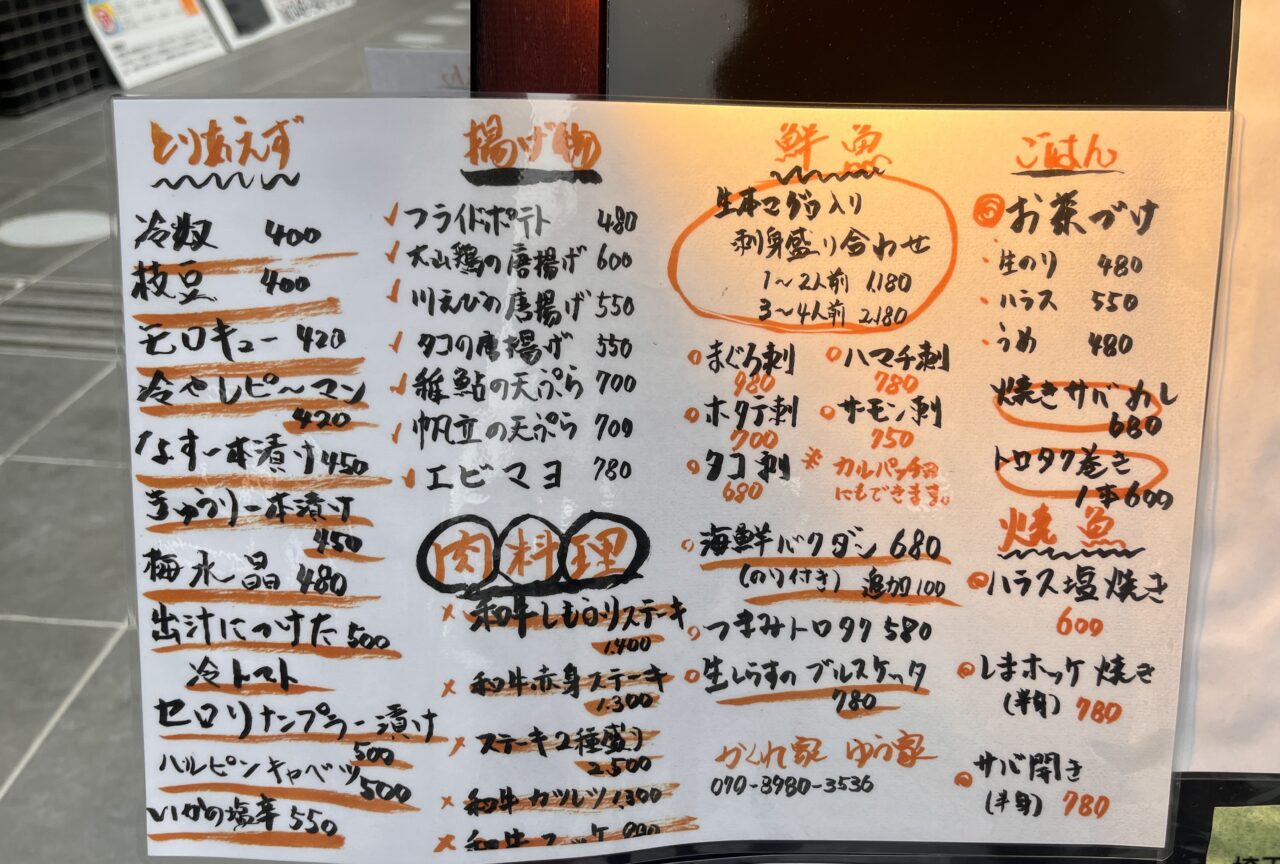 とりあえず
冷奴 400
枝豆 400
モロキュー 420
冷やしピ〜マン
420
なす一本漬け 450
きゅうり一本漬け
450
梅水晶 480
出汁につけた 500
冷トマト
セロリナンプラー漬け
500
ハルピンキャベツ
500
いかの塩辛 550
揚げ物
フライドポテト 480
大山鶏の唐揚げ 600
川えびの唐揚げ 550
タコの唐揚げ 550
稚鮎の天ぷら 700
帆立の天ぷら 700
エビマヨ 780
肉料理
和牛しもふりステーキ
1.400
和牛赤身ステーキ
1.300
ステーキ2種盛り
2.500
和牛カツレツ 1300
和牛
鮮魚
生本マグロ入り
刺身盛り合わせ
1〜2人前 1.180
3〜4人前 2.180
まぐろ刺
980
ハマチ刺
780
ホタテ刺
700
サーモン刺
750
タコ刺
680
※カルパッチョ
にもできます。
海鮮バクダン 680
(のり付き) 追加100
つまみトロタク 580
生しらすのブルスケッタ
780
かくれ家 ゆう家
070-8980-3536
ごはん
お茶づけ
生のり 480
ハラス 550
うめ 480
焼きサバめし
680
トロタク巻き
1本600
焼魚
ハラス塩焼き
600
しまホッケ焼き
(半身) 780
サバ開き
(半身) 780